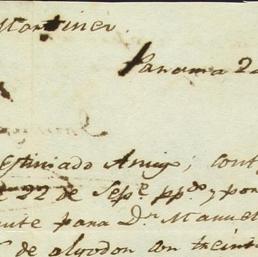 Martinez
Panama 2
Estimado Amigo; cont
22 de Sepe. ppdo. y por
para Dn. Manuel
de algodon con treint